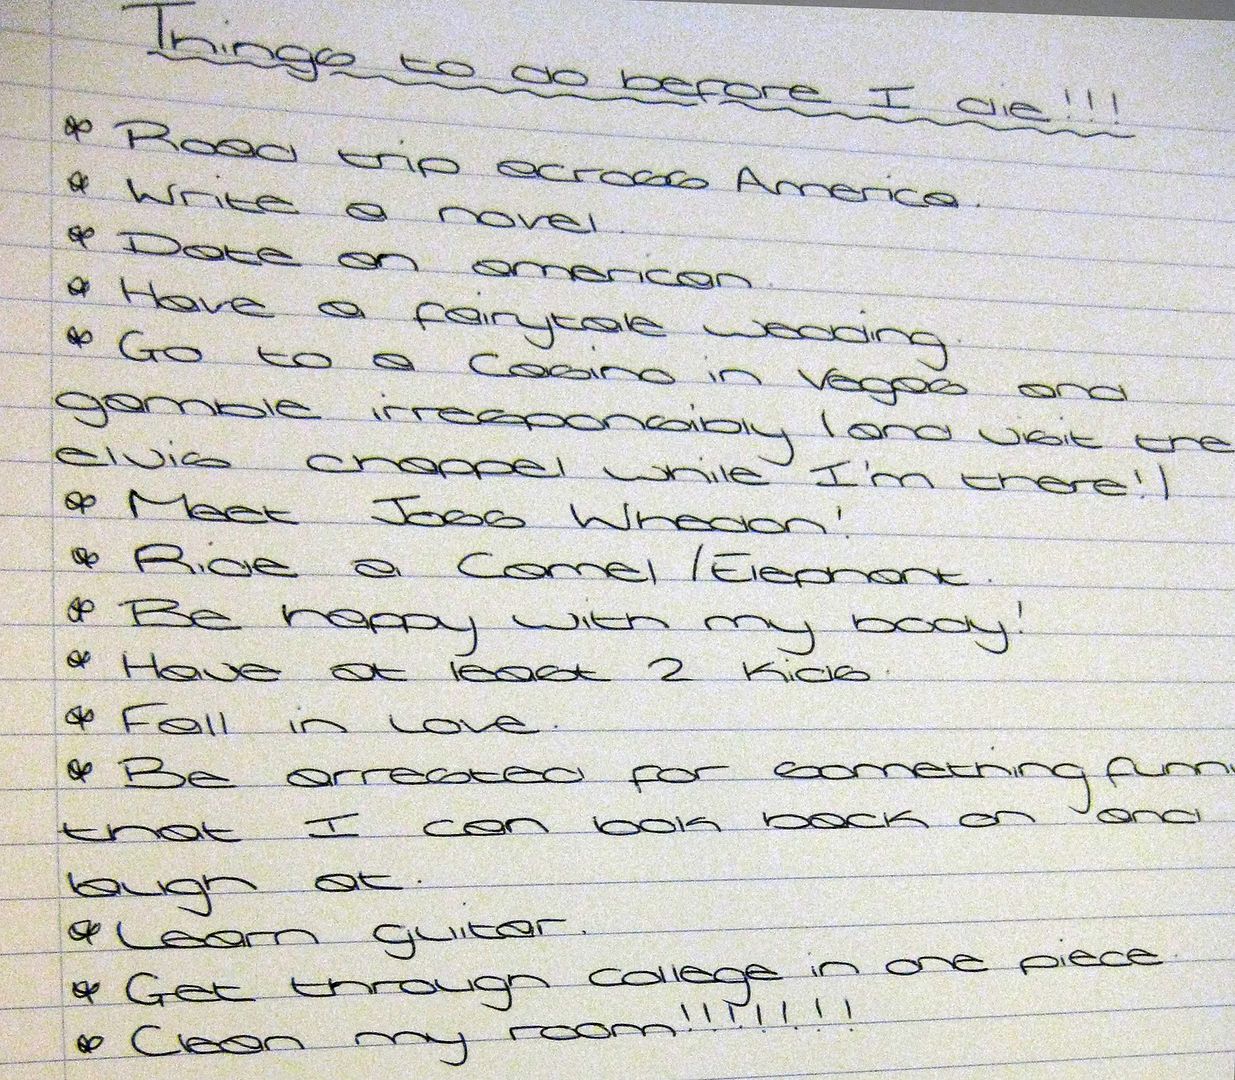 Things to do before I die!!!
* Road trip across America.
* Write a novel.
* Date an american.
* Have a fairytale wedding.
* Go to a Casino in Vegas and
gamble irresponsibly (and visit the
elvis chappel while I'm there!)
* Meet Joss Whedon!
* Ride a Camel/Elephant.
* Be happy with my body!
* Have at least 2 Kids.
* Fall in Love.
* Be arrested for something
that I can look back on and
laugh at.
* Learn guitar.
* Get through college in one piece.
* Clean my room!!!!!!!!